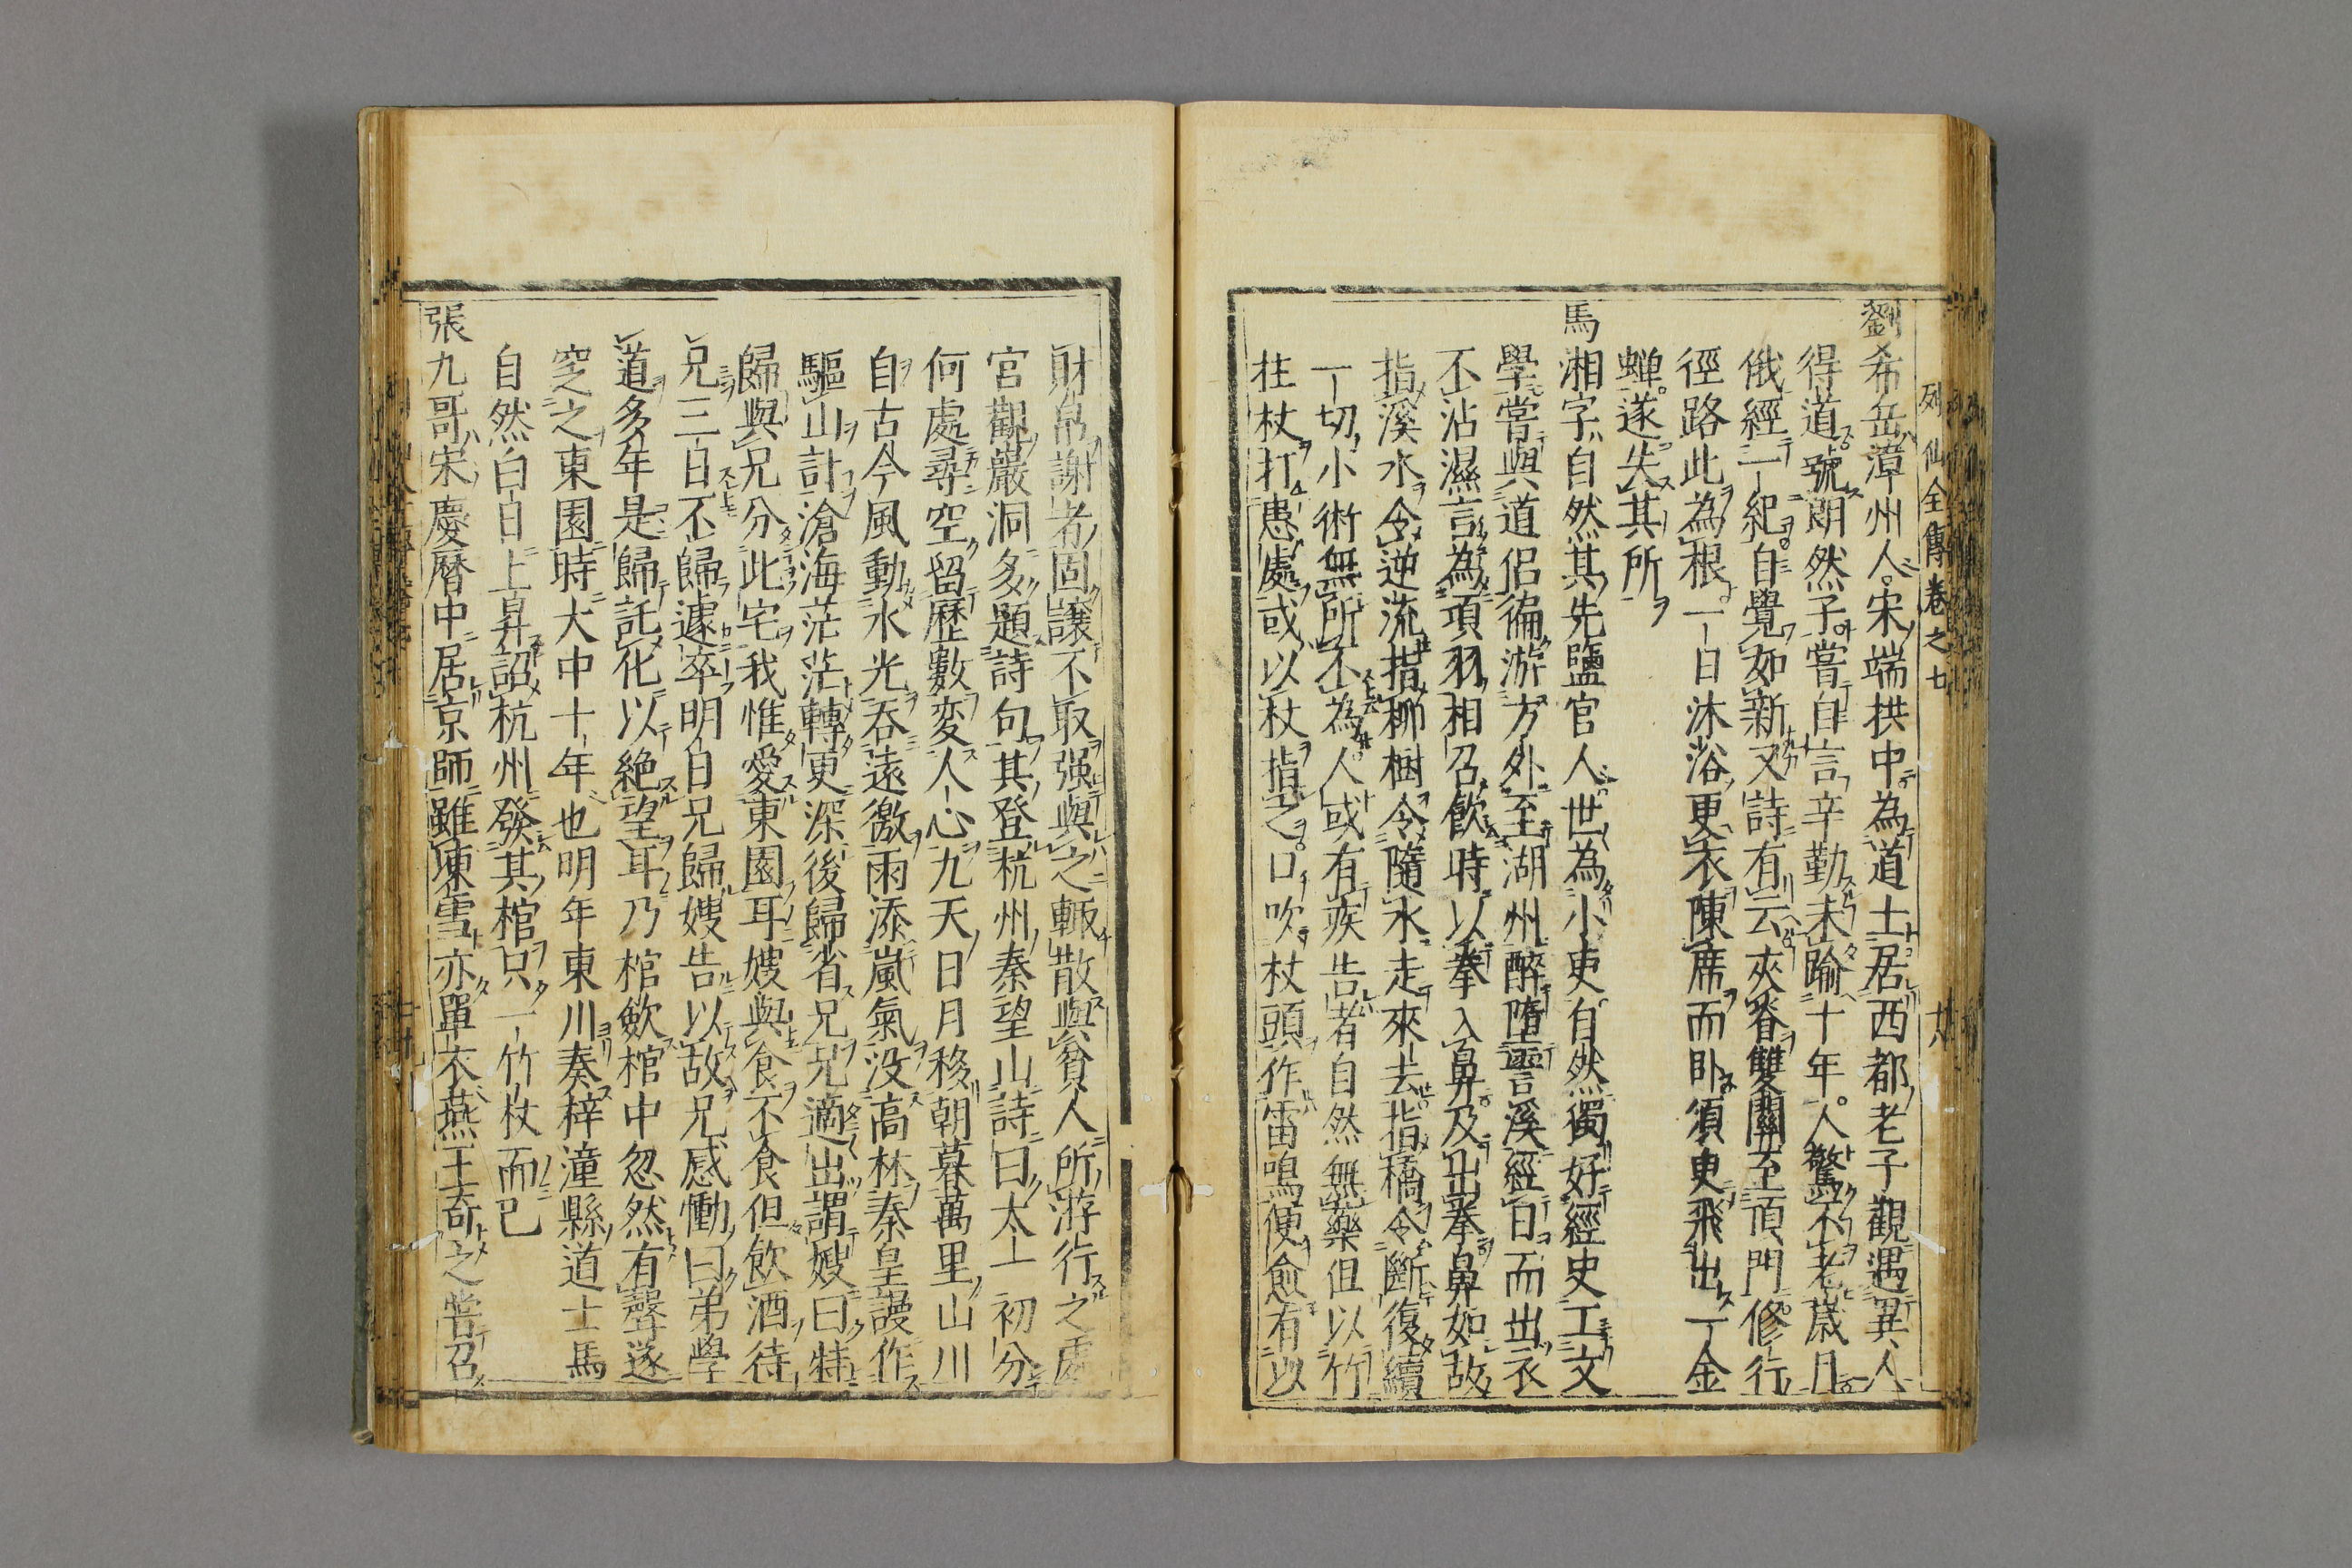 列仙全傳卷之七 廿八
劉希岳漳州人宋端拱中為道士居西都老子觀遇異人
得道號朗然子嘗自言辛勤未踰十年人驚不老歲月
俄經一紀自覺如新又詩有云夾脊雙關至頂門修行
徑路此為根一日沐浴更衣陳席而卧須臾飛出一金
蟬遂失其所
馬湘字自然其先鹽官人世為小吏自然獨好經史工文
學嘗與道侶徧游方外至湖州醉墮霅溪經日而出衣
不沾濕言為項羽相召飲時以拳入鼻及出拳鼻如故
指溪水令逆流指柳樹令隨水走來去指橋令斷復續
一切小術無所不為人或有疾告者自然無藥但以竹
柱杖打患處或以杖指之口吹杖頭作雷鳴便愈有以
財帛謝者固讓不取强與之輙散與貧人所游行之處
宮觀巖洞多題詩句其登杭州秦望山詩曰太一初分
何處尋空留歷數変人心九天日月移朝暮萬里山川
自古今風動水光吞遠徼雨添嵐氣没高林秦皇謾作
驅山計滄海茫茫轉更深後歸省兄兄適出謂嫂曰特
歸與兄分此宅我惟愛東園耳嫂與食不食但飲酒待
兄三日不歸遽卒明日兄歸嫂告以故兄感慟曰弟學
道多年是歸託化以絶望耳乃棺歛棺中忽然有聲遂
窆之東園時大中十年也明年東川奏梓潼縣道士馬
自然白日上昇詔杭州發其棺只一竹杖而已
張九哥宋慶曆中居京師雖凍雪亦單衣燕王奇之嘗召